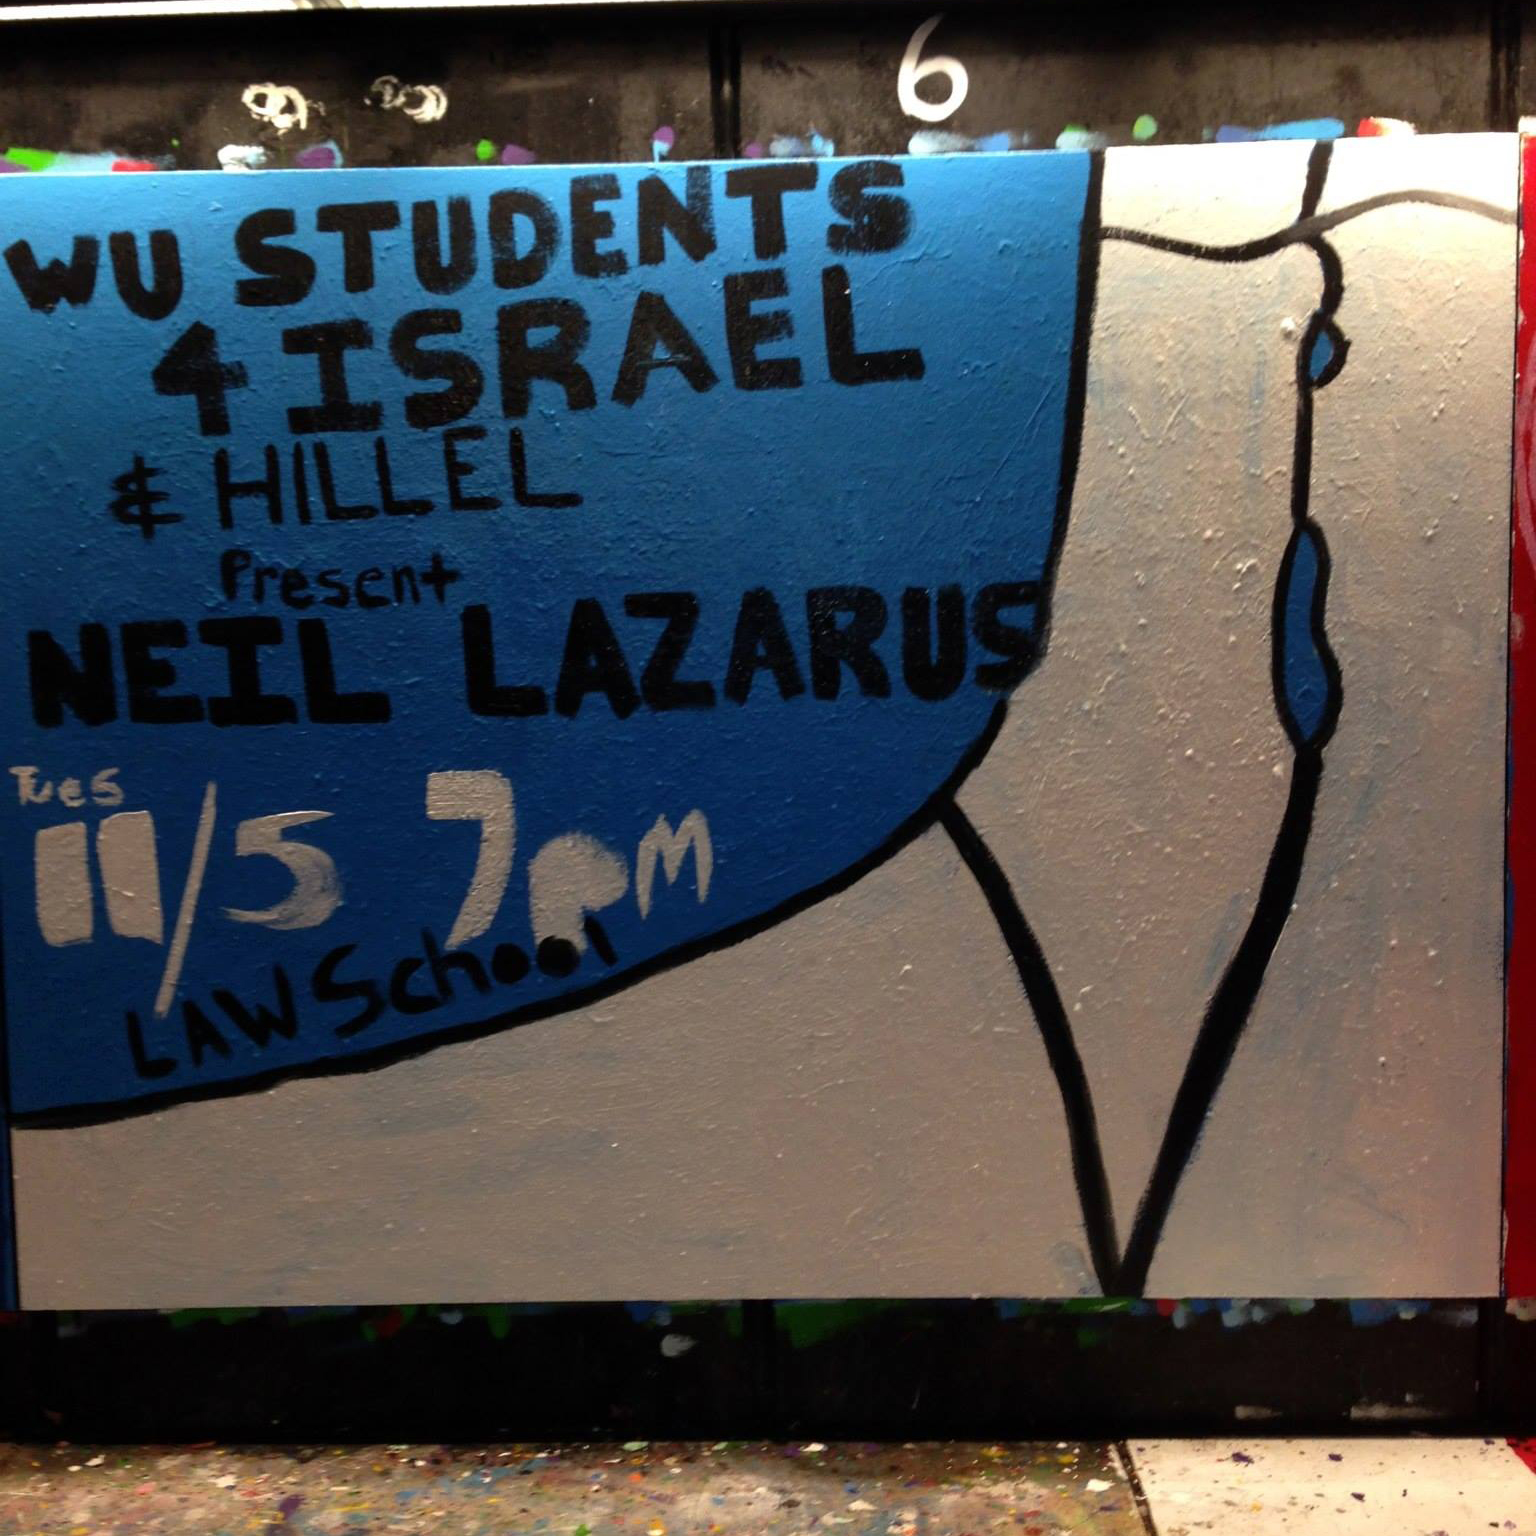 6
WU STUDENTS
4 ISRAEL
& HILLEL
Present
NEIL LAZARUS
Tues
11/5 7pm
LAW School